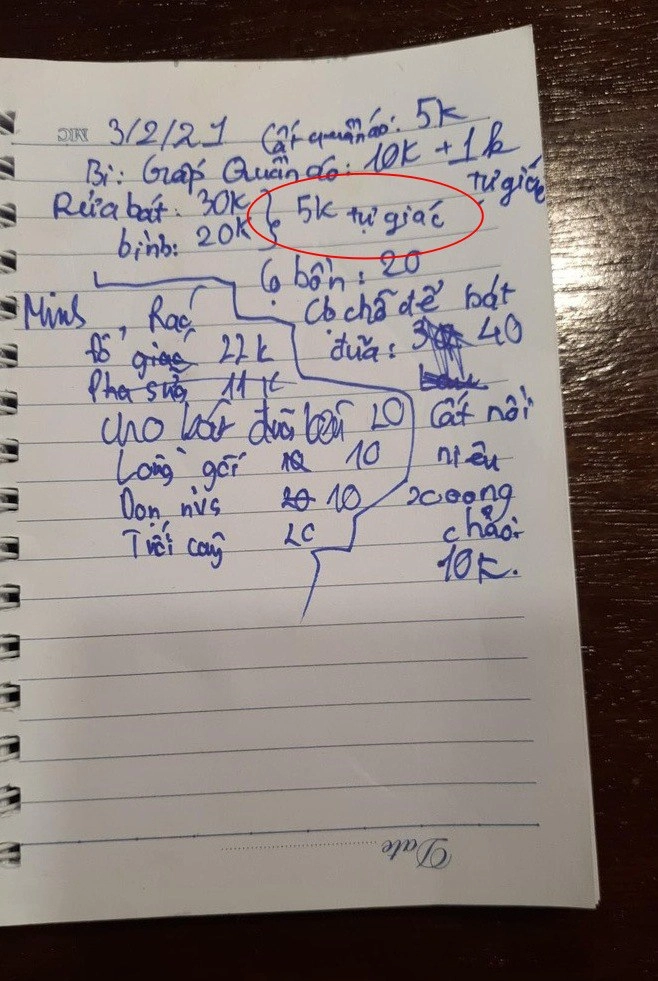 3/2/21 Cất quần áo: 5k
Bi: Gấp Quần áo: 10k + 1k
tự giác
Rửa bát: 30k } 5k tự giác
bình: 20k
Cọ bồn: 20
Minh, Rác
Cọ chỗ để bát
đũa: 40
Đổ 22k
Pha sữa 11k
cho bát đũa 20
Cất nồi
Lồng gối 10
niêu
Dọn nvs 10
xoong
chảo:
Tưới cây 20
10k.
Date